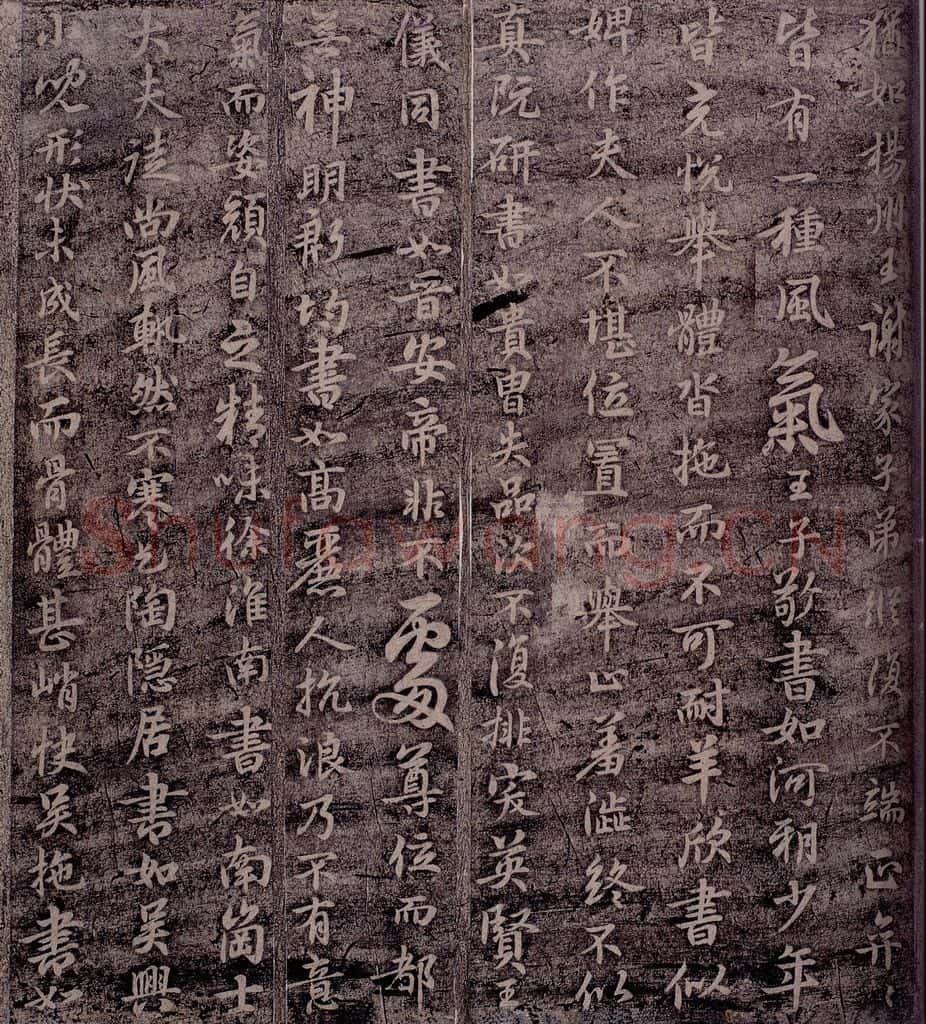 猶如楊州王謝家子弟縱復不端正弈〻
皆有一種風氣王子敬書如河朔少年
皆充悅舉體沓拖而不可耐羊欣書似
婢作夫人不堪位置而舉止羞澀終不似
真阮研書如貴冑失品次不復排突英賢王
儀同書如晉安帝非不處尊位而都
無神明殷均書如高麗人抗浪乃不有意
氣而姿顏自乏精味徐淮南書如南崗士
大夫徒尚風軌然不寒乞陶隱居書如吳興
小兒形狀未成長而骨體甚峭快吳拖書如
Shufawang.CN